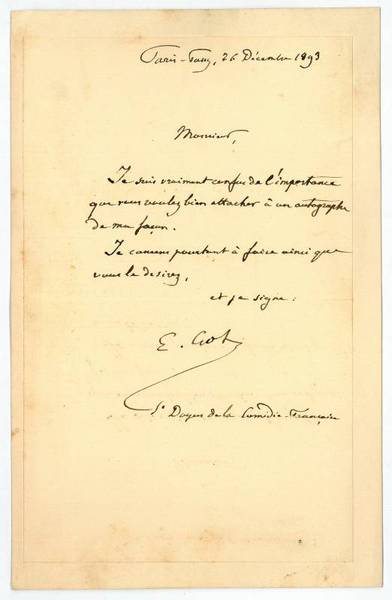 Paris-Passy, 26 Décembre 1893
Monsieur,
Je suis vraiment confus de l'importance
que vous voulez bien attacher à un autographe
de ma façon.
Je consens pourtant à faire ainsi que
vous le desirez,
et je signe :
E. Got
Doyen de la Comédie-Française